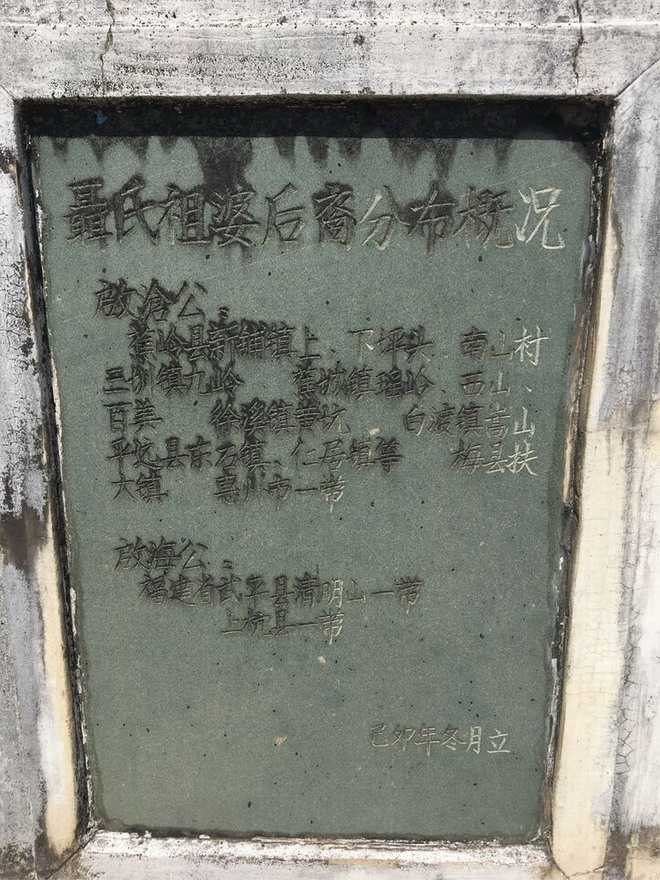 聶氏祖婆后裔分布概况
啟滄公：
蕉岭县新铺镇上、下坪头 南山村
三圳镇九岭 蕉城镇瑶岭、西山、
百美 徐溪镇黄坑 白渡镇嵩山
平远县东石镇、仁居镇等 梅县扶
大镇 惠州市一带
啟海公：
福建省武平县清明山一带
上杭县一带
己卯年冬月立